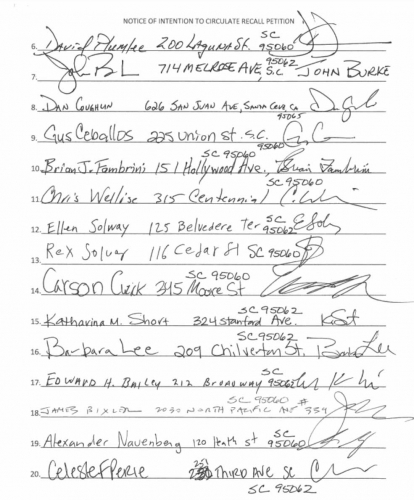 NOTICE OF INTENTION TO CIRCULATE RECALL PETITION
6. David Plumlee 200 Laguna St. SC 95060
7. 714 MELROSE AVE, SC 95062 JOHN BURKE
8. DAN COUGHLIN 626 SAN JUAN AVE, SANTA CRUZ, CA 95065
9. Gus Ceballos 225 Union St. S.C. 95060
10. Brian J. Fambrini 151 Hollywood Ave., SC 95060 Brian Fambrini
11. Chris Wellise 315 Centennial SC 95060
12. Ellen Solway 125 Belvedere Ter SC 95062
13. Rex Solway 116 Cedar St SC 95060
14. Carson 345 Moore St SC 95060
15. Katharina M. Short 324 Stanford Ave. SC 95062
16. Barbara Lee 209 Chilverton St. SC 95062
17. EDWARD H. BAILEY 212 BROADWAY SC
18. JAMES 2030 NORTH PACIFIC AVE # 339 SC 95060
19. Alexander Nauenberg 120 St SC 95060
20. CELESTE 251 THIRD AVE SC
SC 95062